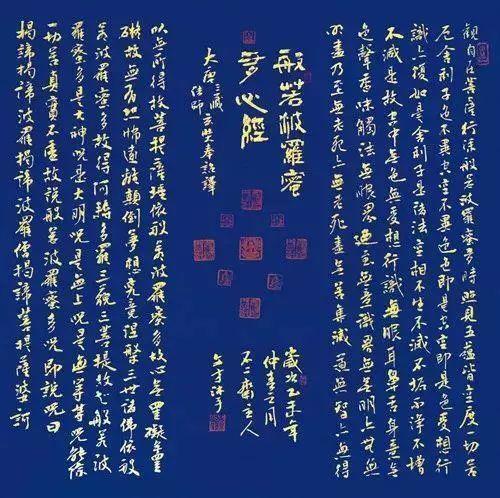 觀自在菩薩行深般若波羅蜜多時照見五蘊皆空度一切苦
厄舍利子色不異空空不異色色即是空空即是色受想行
識亦復如是舍利子是諸法空相不生不滅不垢不淨不增
不減是故空中無色無受想行識無眼耳鼻舌身意無
色聲香味觸法無眼界乃至無意識界無無明亦無無
明盡乃至無老死亦無老死盡無苦集滅道無智亦無得
般若波羅蜜
多心經
大唐三藏
法師玄奘奉詔譯
歲次乙未年
仲春之月
不二齋主人
沐手
以無所得故菩提薩埵依般若波羅蜜多故心無罣礙無罣
礙故無有恐怖遠離顛倒夢想究竟涅槃三世諸佛依般
若波羅蜜多故得阿耨多羅三藐三菩提故知般若波
羅蜜多是大神咒是大明咒是無上咒是無等等咒能除
一切苦真實不虛故說般若波羅蜜多咒即說咒曰
揭諦揭諦波羅揭諦波羅僧揭諦菩提薩婆訶